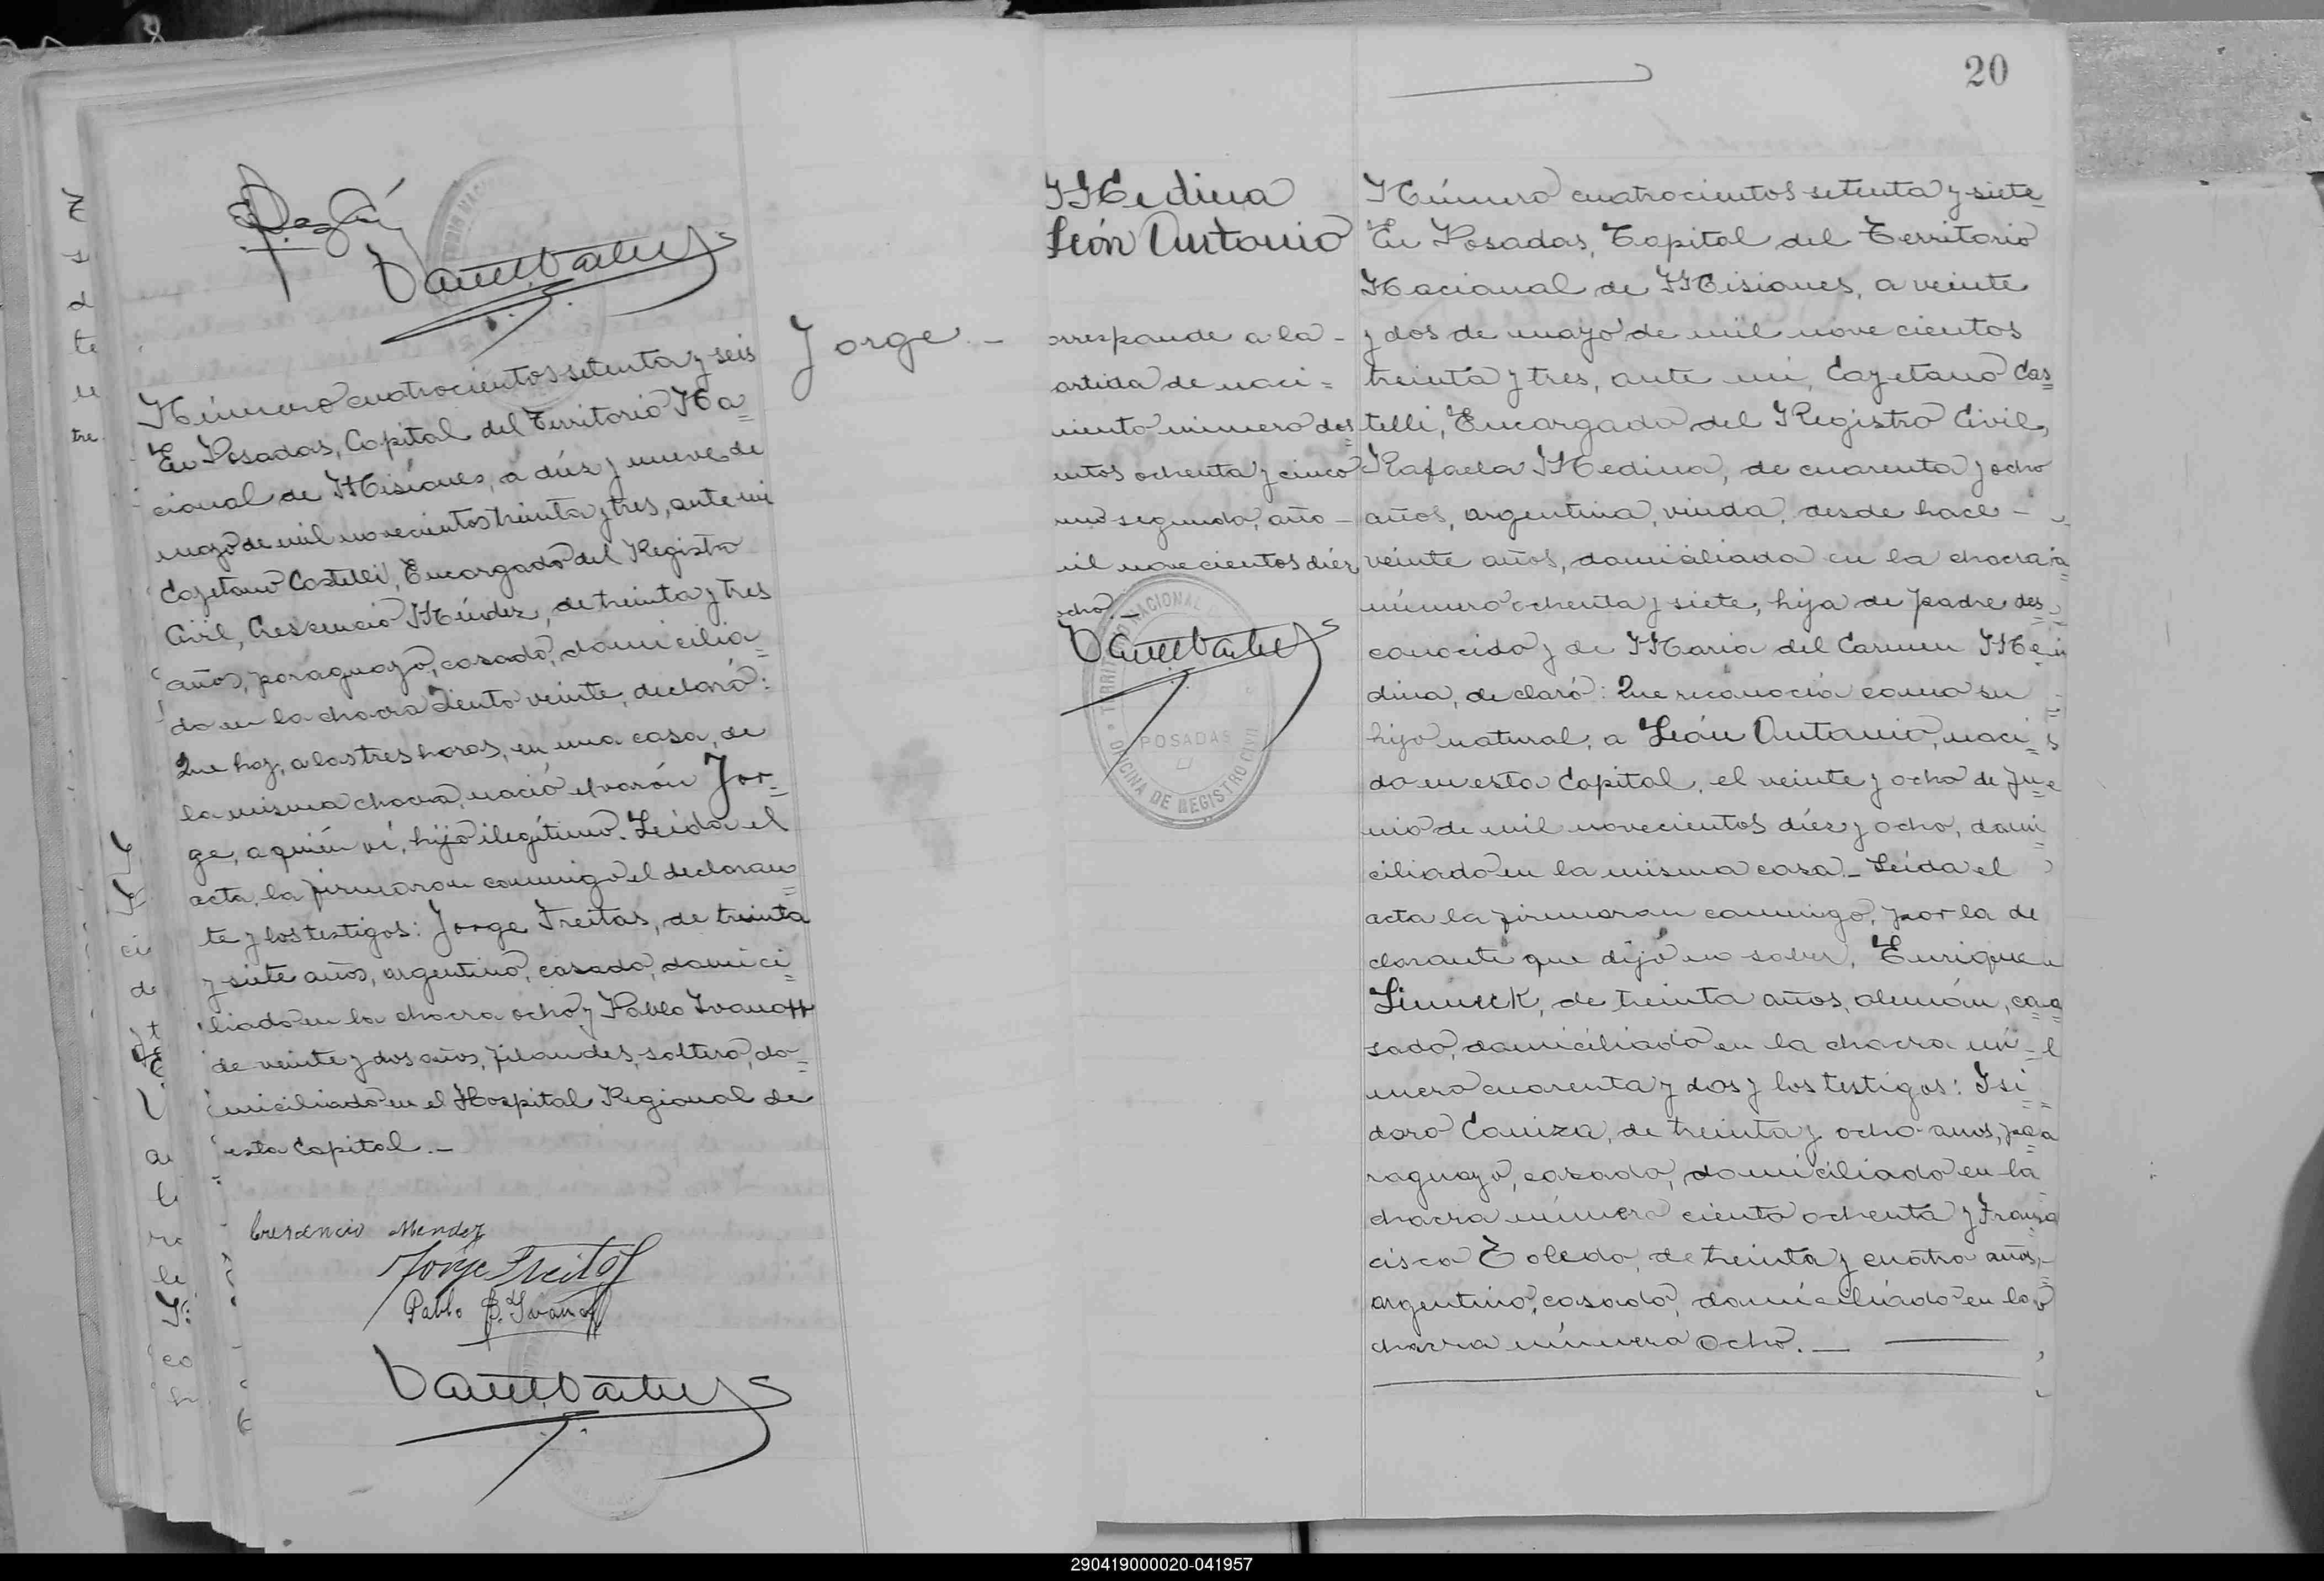 Número cuatrocientos setenta y seis
En Posadas, Capital del Territorio Na=
cional de Misiones, a diéz y nueve de
mayo de mil novecientos treinta y tres, ante mi
Cayetano Castelli, Encargado del Registro
Civil, Crescencio Méndez, de treinta y tres
años, paraguayo, casado, domicilia=
do en la chacra ciento veinte, declaró:
Que hoy, a las tres horas, en una casa, de
la misma chacra, nació el varón Jor=
ge, a quién ví, hijo ilegítimo. Leída el
acta, la firmaron conmigo el declaran=
te y los testigos: Jorge Freitas, de treinta
y siete años, argentino, casado, domici=
liado en la chacra ocho y Pablo Ivanoff
de veinte y dos años, filandes, soltero, do=
miciliado en el Hospital Regional de
esta Capital.—
Cresencio Mendez
Jorge Freitas
Pablo B. Ivanoff
Jorge.—
20
Medina
León Antonio
orresponde a la -
artida de naci=
miento número dos
entos ochenta y cinco
segunda, año -
mil novecientos diéz
ocho
TERRITORIO NACIONAL
POSADAS
OFICINA DE REGISTRO CIVIL
Número cuatrocientos setenta y siete
En Posadas, Capital del Territorio
Nacional de Misiones, a veinte
y dos de mayo de mil novecientos
treinta y tres, ante mi, Cayetano Cas=
telli, Encargado del Registro Civil,
Rafaela Medina, de cuarenta y ocho
años, argentina, viuda, desde hace -
veinte años, domiciliada en la chacra
número ochenta y siete, hija de padre des=
conocido y de Maria del Carmen Me=
dina, declaró: Que reconocía como su
hijo natural, a León Antonio, naci=
do en esta Capital, el veinte y ocho de Ju=
nio de mil novecientos diéz y ocho, domi=
ciliado en la misma casa.- Leída el
acta la firmaron conmigo, por la de
clarante que dijó no saber, Enrique
Linneck, de treinta años, alemán, ca=
sado, domiciliado en la chacra nú=
mero cuarenta y dos y los testigos: Isi=
doro Caniza, de treinta y ocho años, pa=
raguayo, casado, domiciliado en la
chacra número ciento ochenta y Fran=
cisco Toledo, de treinta y cuatro años,
argentino, casado, domiciliado en la
chacra número ocho.—
290419000020-041957